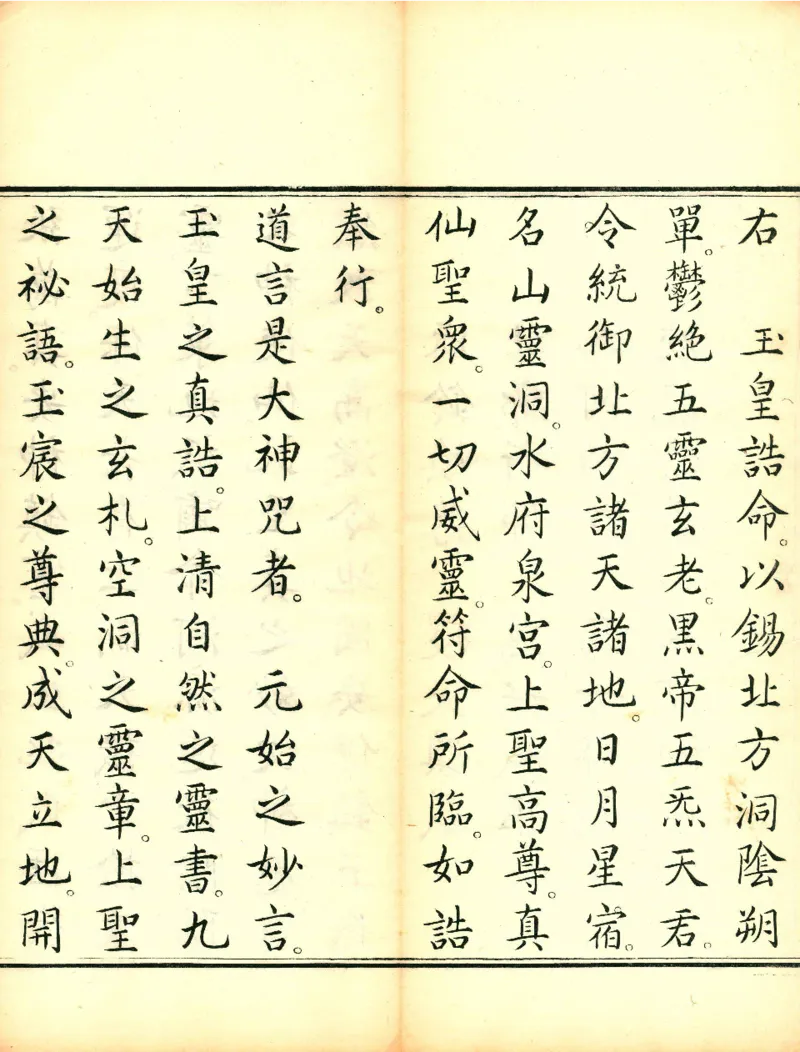 右　玉皇誥命。以錫北方洞陰朔
單。鬱絕五靈玄老。黑帝五炁天君。
令統御北方諸天諸地。日月星宿。
名山靈洞。水府泉宮。上聖高尊。真
仙聖衆。一切威靈。符命所臨。如誥
奉行。
道言是大神咒者。　元始之妙言。
玉皇之真誥。上清自然之靈書。九
天始生之玄札。空洞之靈章。上聖
之祕語。玉宸之尊典。成天立地。開